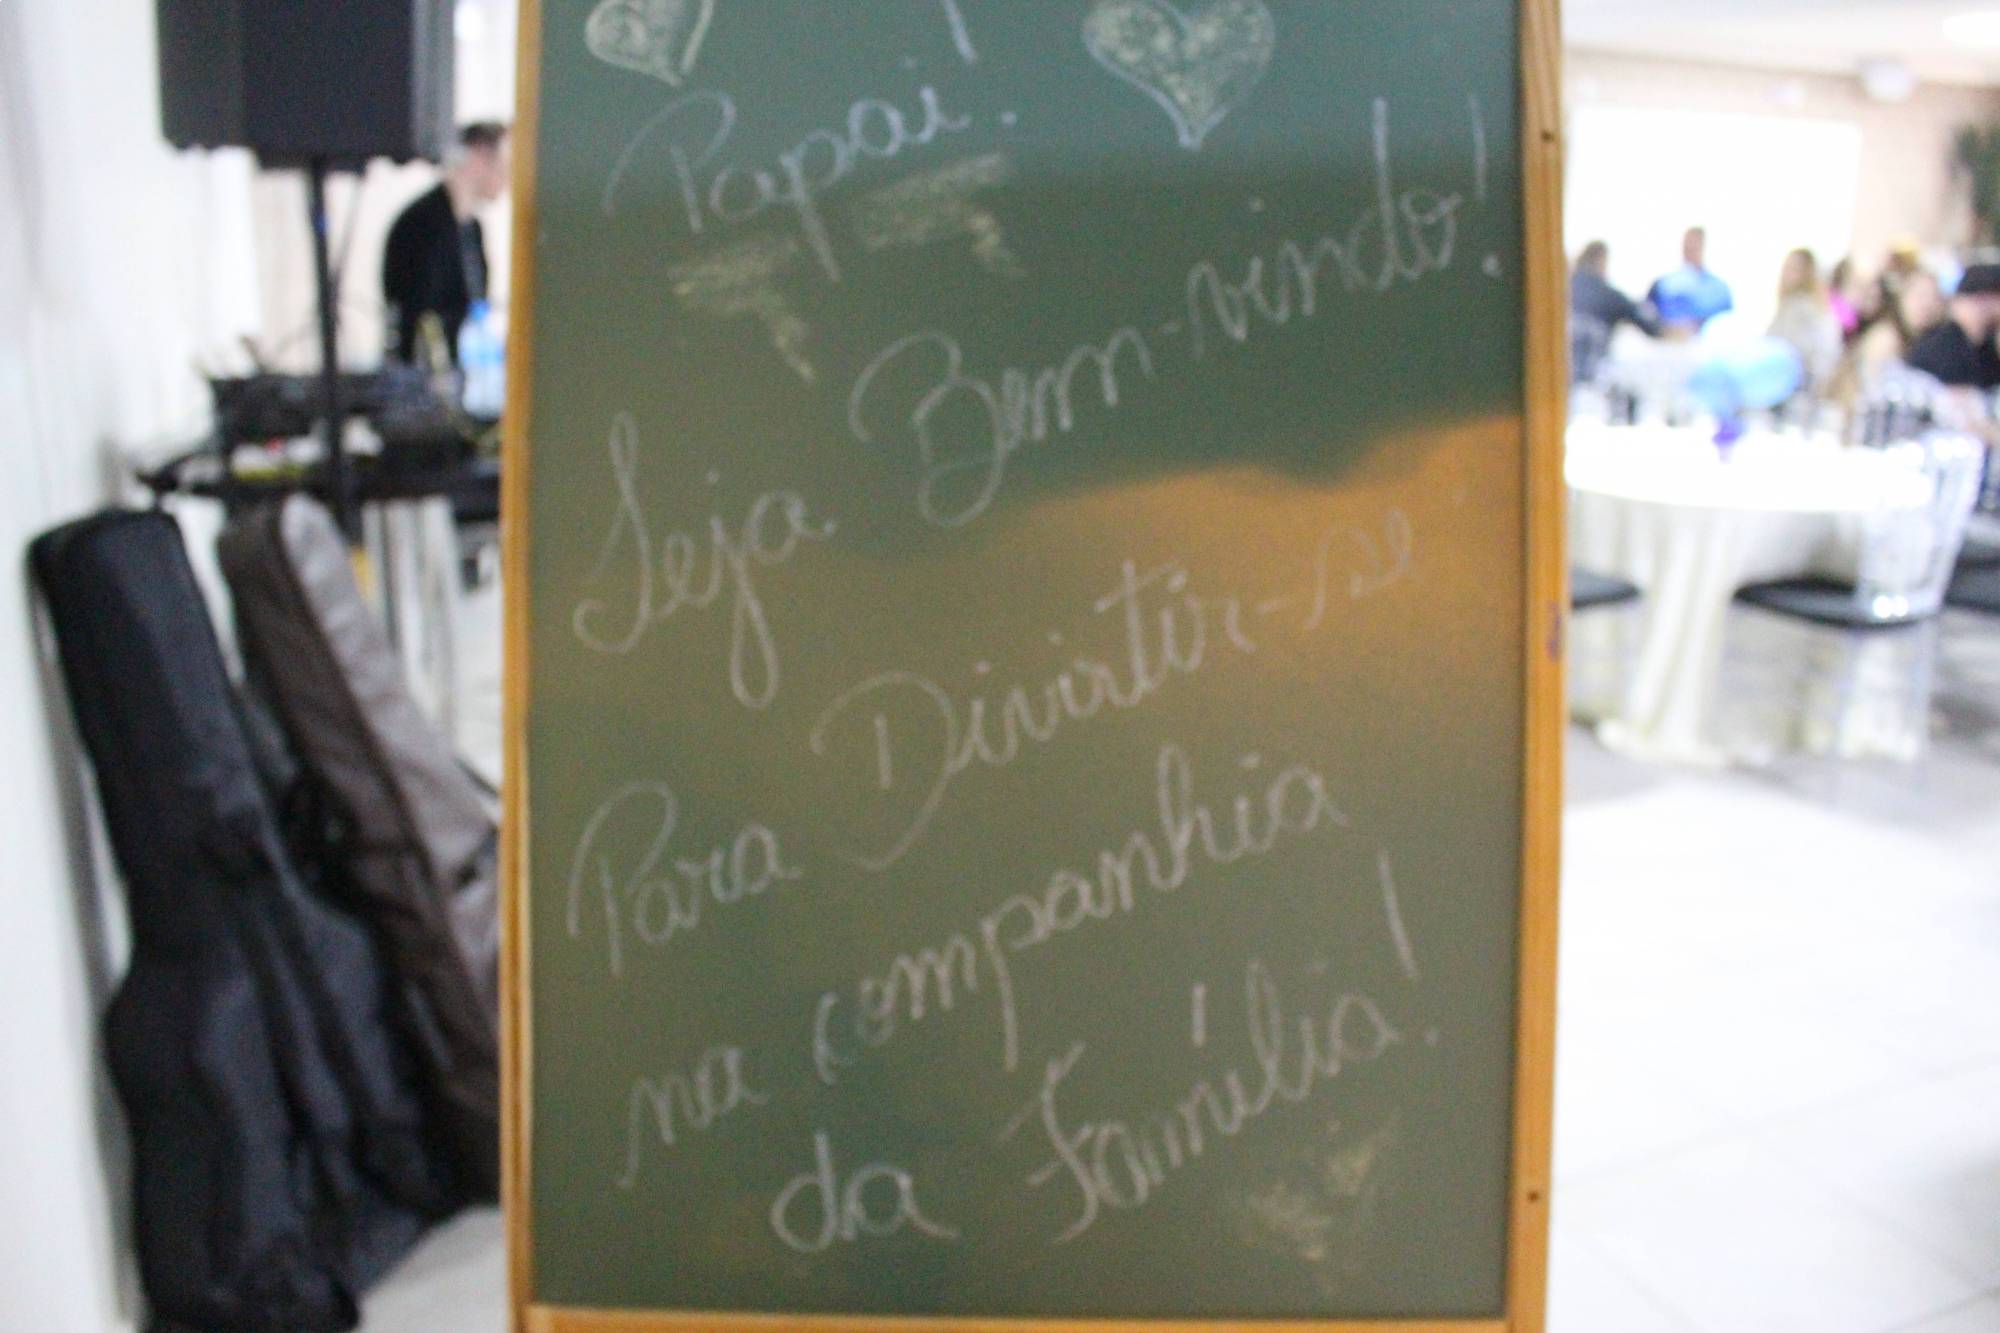 Papai!
Seja Bem-vindo!
Para Divirtir-se
na companhia
da Família!